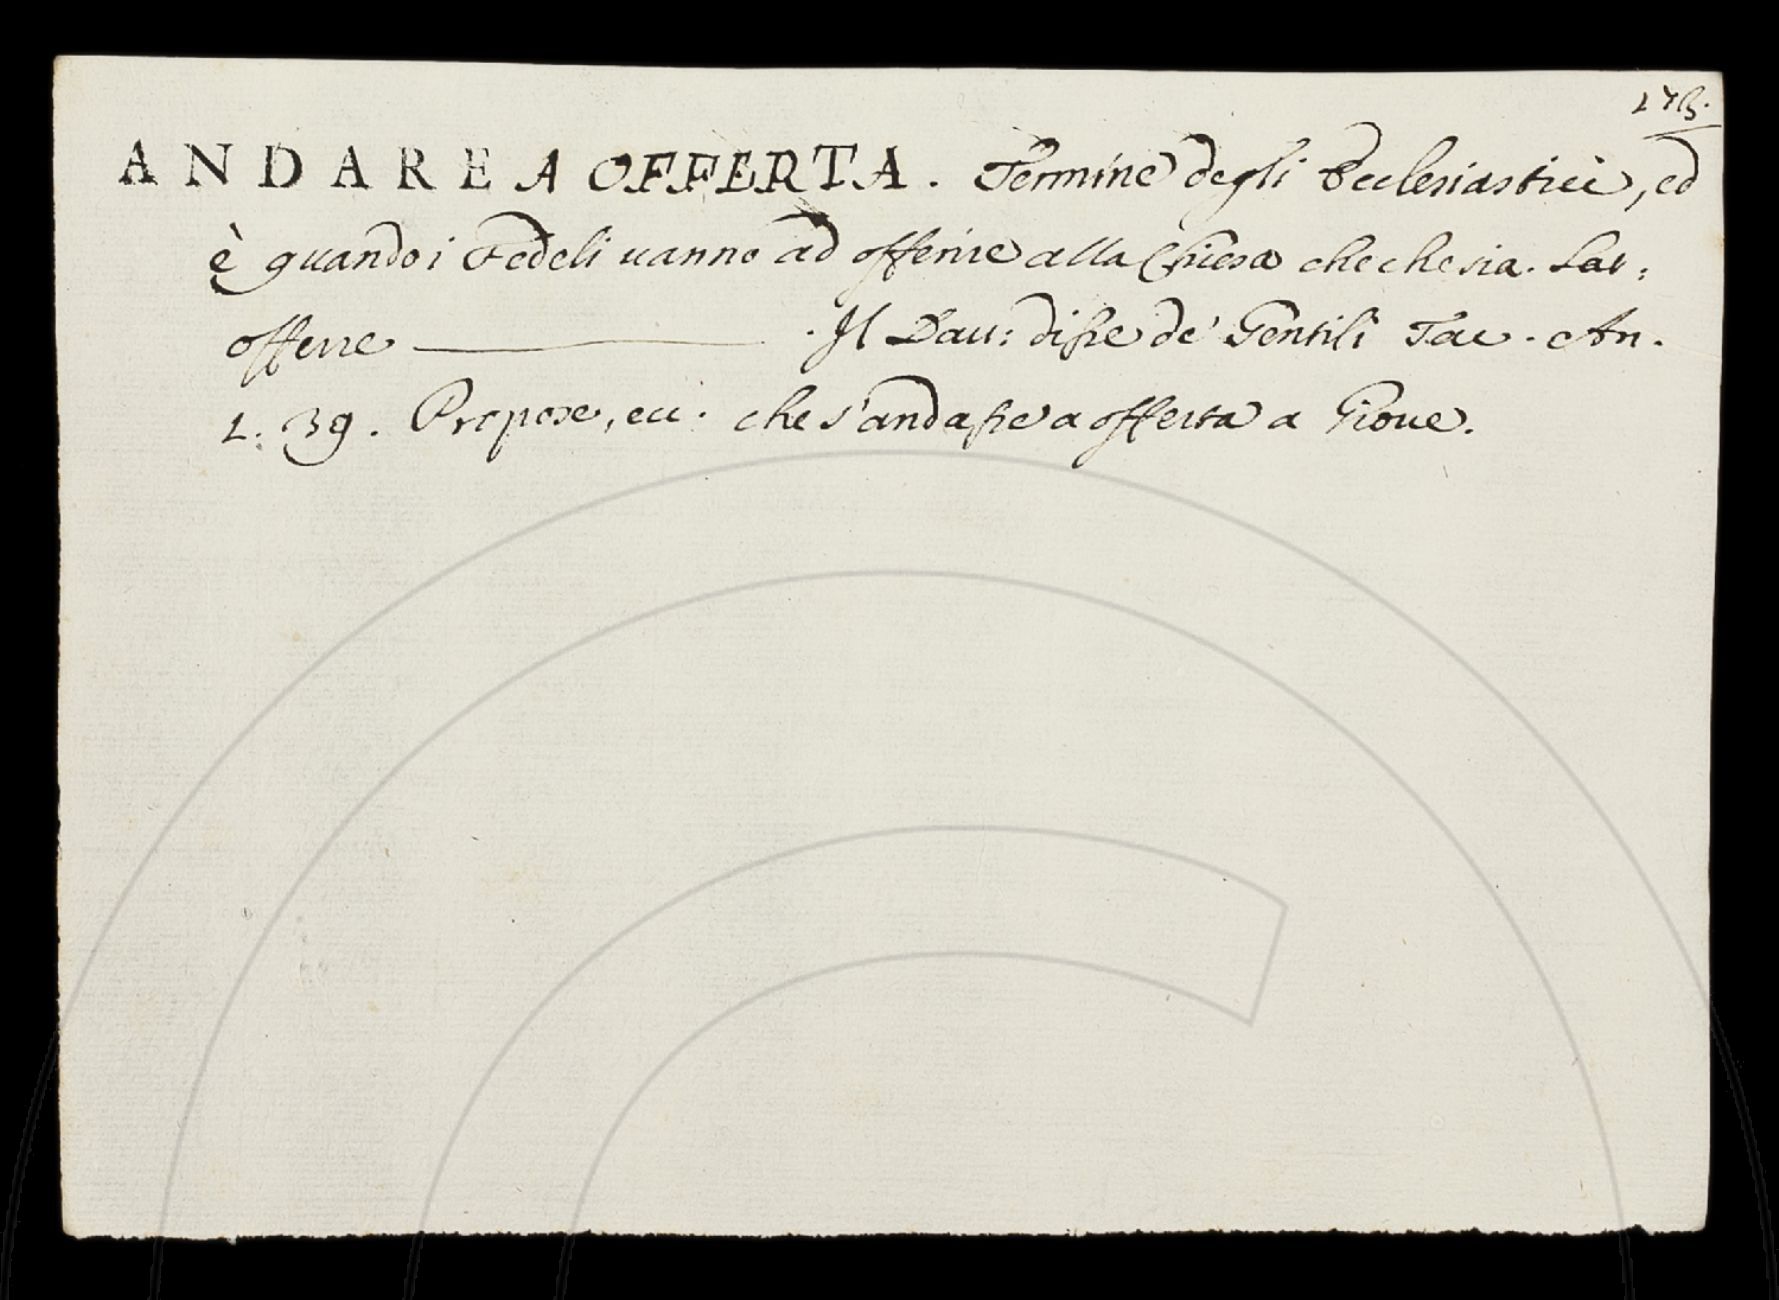 ANDARE A OFFERTA. Termine degli Ecclesiastici, ed
è quando i Fedeli uanno ad offerire alla Chiesa che che sia. Lat:
offerre ———— . Il Dau: disse de' Gentili Tac. An.
1. 39. Propose, ecc. che s'andasse a offerta a Gioue.